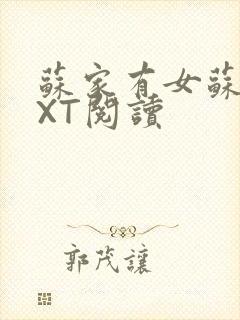 蘇家有女蘇
XT閱讀
郭茂讓